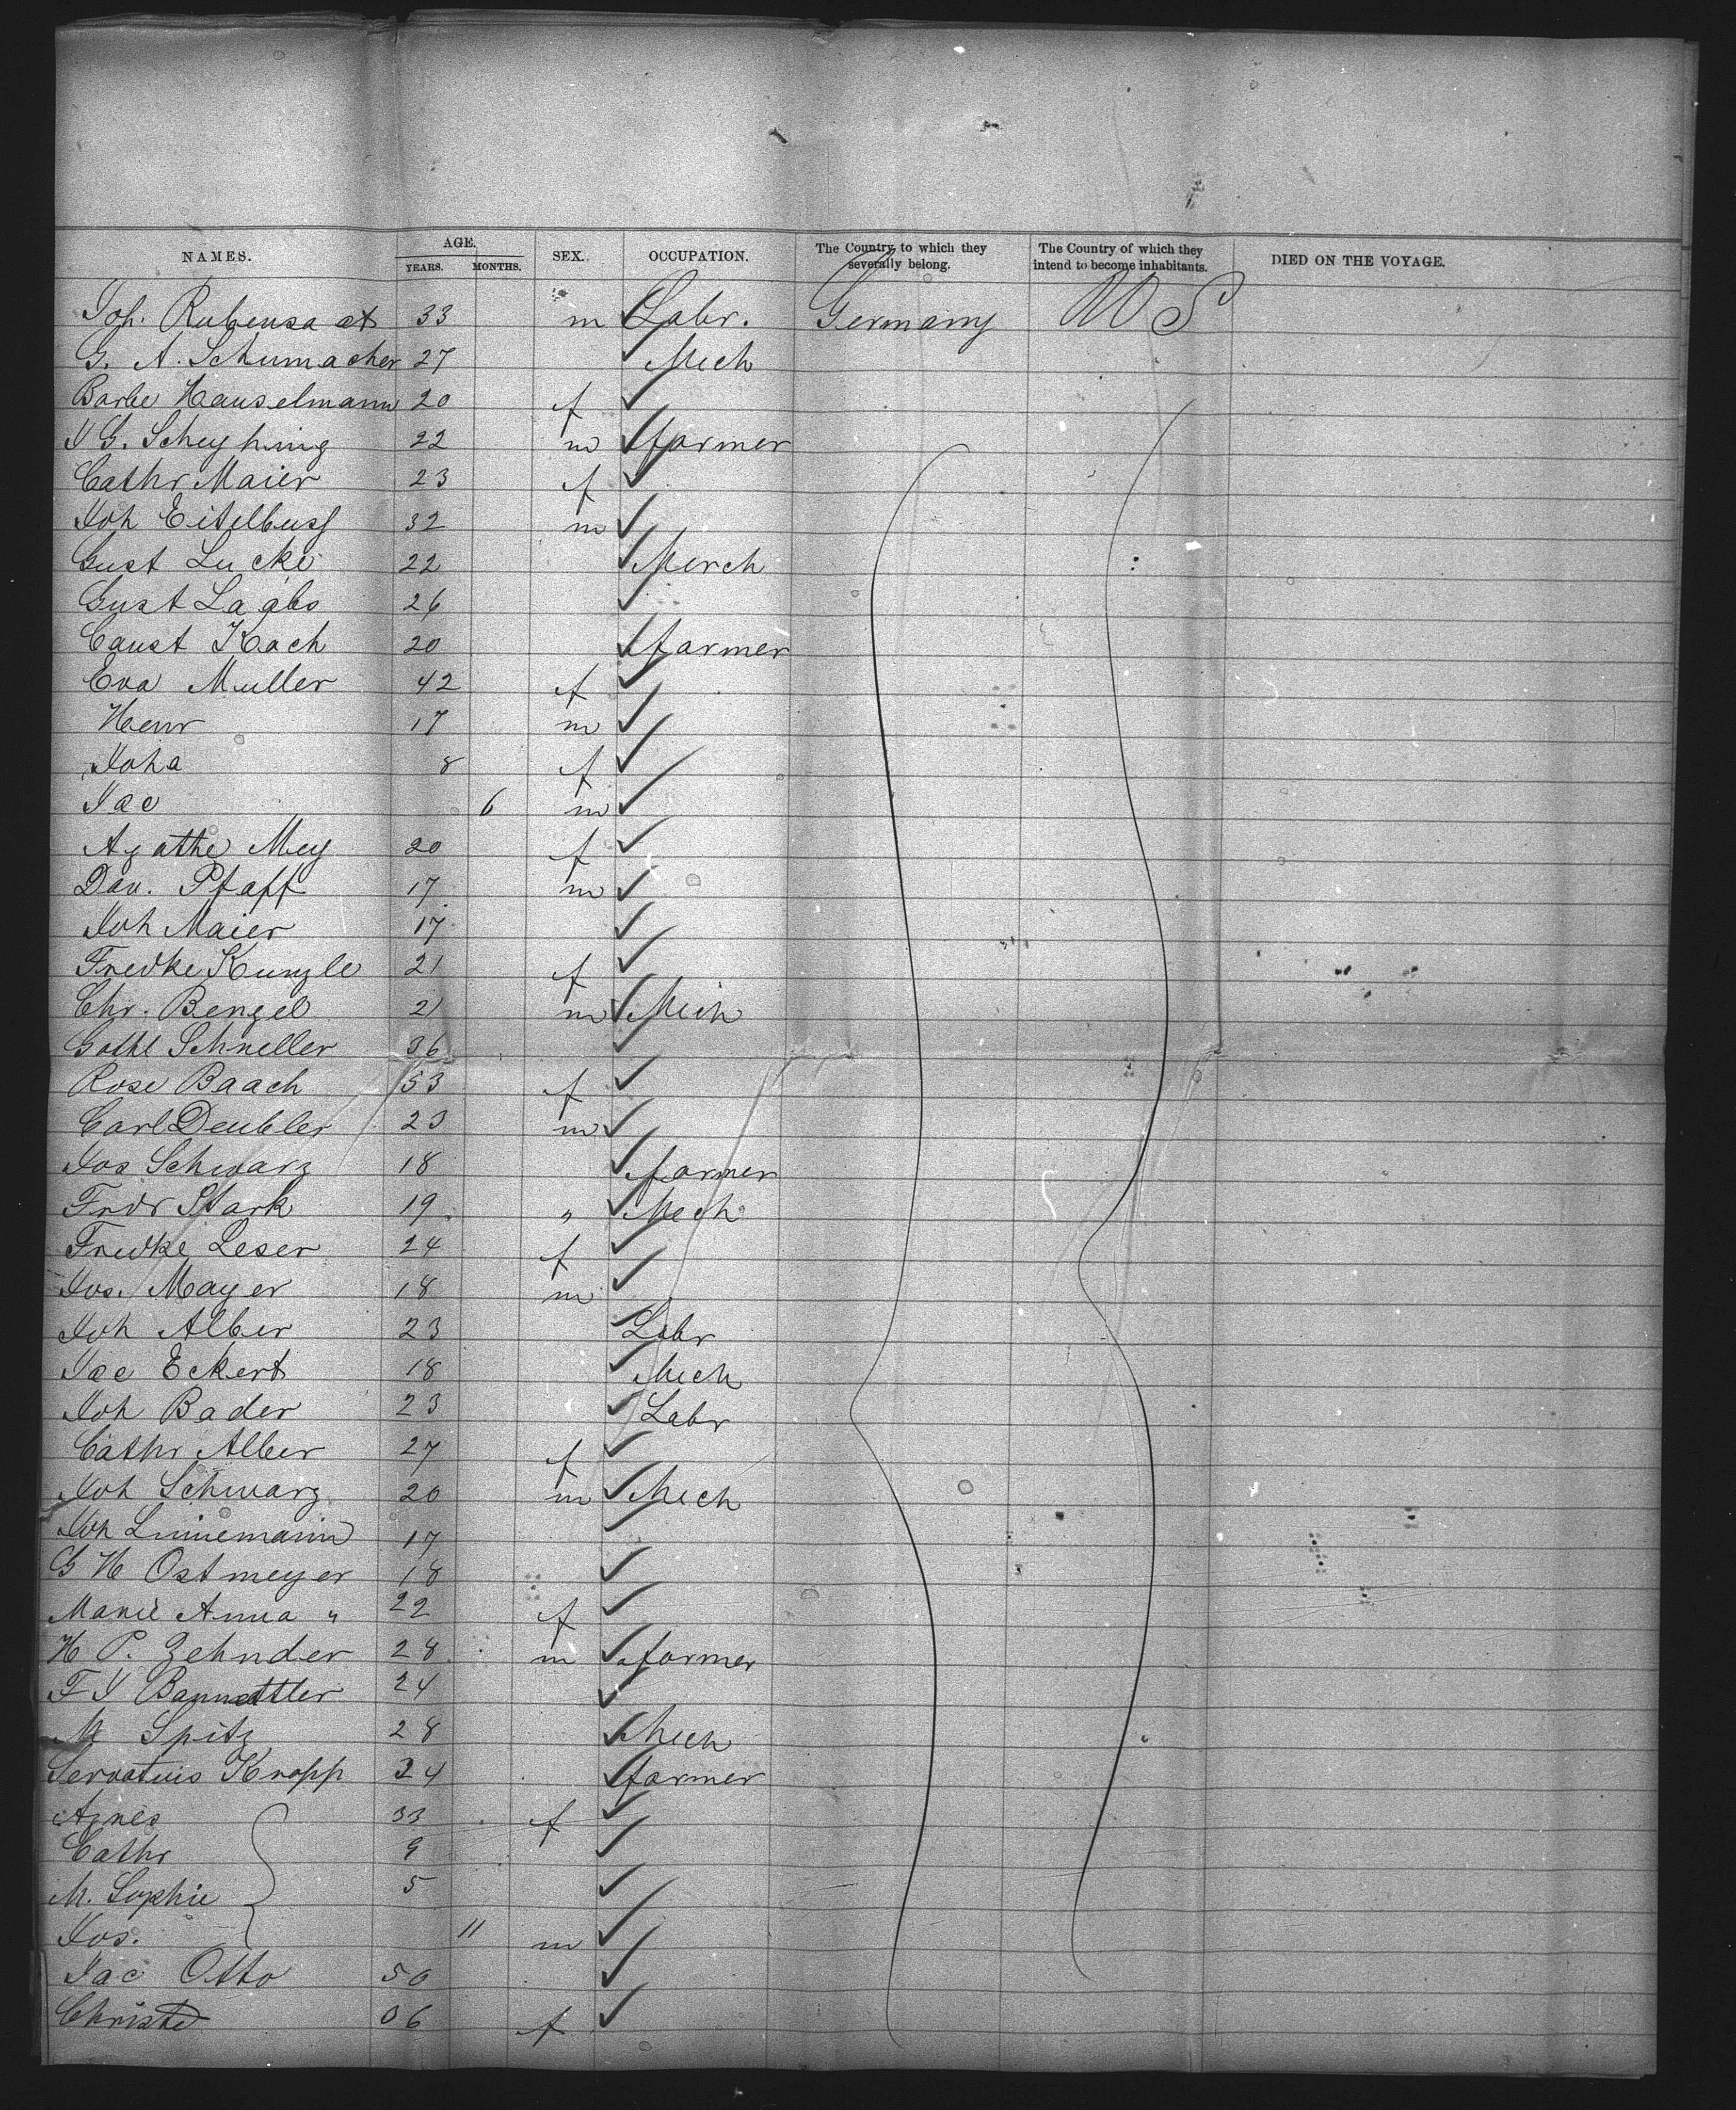 NAMES. AGE. YEARS. MONTHS. SEX. OCCUPATION. The Country, to which they severally belong. The Country of which they intend to become inhabitants. DIED ON THE VOYAGE.
Jos. Rubensa at 33 m Labr. Germany U S
G. A. Schumacher 27 Mech
Barbe Hauselmann 20 f
J G. Scheyhing 22 m farmer
Cathr Maier 23 f
Joh 32 m
Gust Lucke 22 Merch
Gust Laabs 26
Kach 20 farmer
Eva Muller 42 f
Henr 17 m
Joha 8 f
Jac 6 m
Agathe Mey 20 f
Dav. Pfaff 17 m
Joh Maier 17
Fredke Kunzle 21 f
Chr. Bengel 21 m Mech
Gottl Schneller 36
Rose Baach 53 f
Carl Deubler 23 m
Jos Schwarz 18 farmer
Fridr Stark 19 " Mech
Fredke Leser 24 f
Jos. Mayer 18 m
Joh Alber 23 Labr
Jac Eckert 18 Mech
Joh Bader 23 Labr
Cathr Alber 27 f
Joh Schwarz 20 m Mech
Joh Linnemann 17
G H Ostmeyer 18
Marie Anna " 22 f
H P. Zehnder 28 m farmer
F J 24
M Spitz 28 Mech
Servatius Kropp 34 farmer
Agnes 33 f
Cathr 9
M. Sophie 5
Jos. 11 m
Jac Otto 50
Christe 06 f